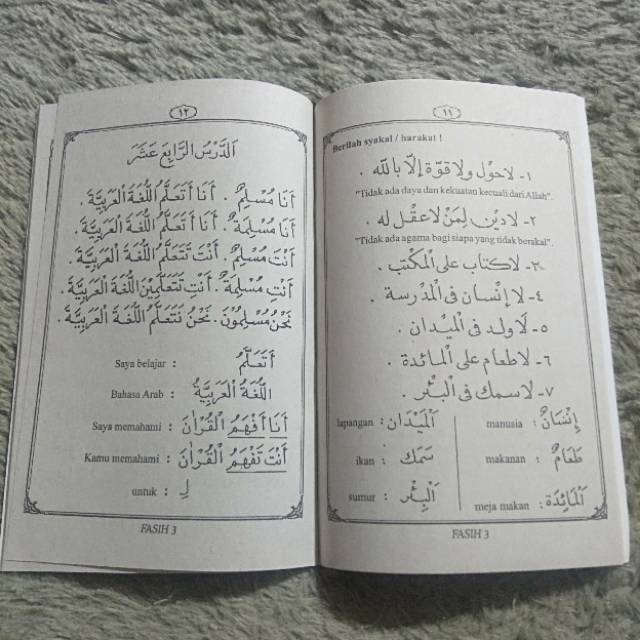 ١١
Berilah syakal / harakat !
١- لاحول ولا قوة إلا بالله .
"Tidak ada daya dan kekuatan kecuali dari Allah".
٢- لادين لمن لاعقل له .
"Tidak ada agama bagi siapa yang tidak berakal".
٣- لاكتاب على المكتب .
٤- لا إنسان فى المدرسة .
٥- لاولد فى الميدان .
٦- لاطعام على المائدة .
٧- لاسمك فى البئر .
إِنْسَانٌ : manusia
اَلْمَيْدَانُ : lapangan
طَعَامٌ : makanan
سَمَكٌ : ikan
اَلْمَائِدَةُ : meja makan
اَلْبِئْرُ : sumur
FASIH 3
١٢
اَلدَّرْسُ الرَّابِعَ عَشَرَ
أَنَا مُسْلِمٌ . أَنَا أَتَعَلَّمُ اللُّغَةَ الْعَرَبِيَّةَ .
أَنَا مُسْلِمَةٌ . أَنَا أَتَعَلَّمُ اللُّغَةَ الْعَرَبِيَّةَ .
أَنْتَ مُسْلِمٌ . أَنْتَ تَتَعَلَّمُ اللُّغَةَ الْعَرَبِيَّةَ .
أَنْتِ مُسْلِمَةٌ . أَنْتِ تَتَعَلَّمِيْنَ اللُّغَةَ الْعَرَبِيَّةَ .
نَحْنُ مُسْلِمُوْنَ . نَحْنُ نَتَعَلَّمُ اللُّغَةَ الْعَرَبِيَّةَ .
أَتَعَلَّمُ : Saya belajar
اَللُّغَةُ الْعَرَبِيَّةُ : Bahasa Arab
أَنَا أَفْهَمُ الْقُرْآنَ : Saya memahami
أَنْتَ تَفْهَمُ الْقُرْآنَ : Kamu memahami
لِ : untuk
FASIH 3